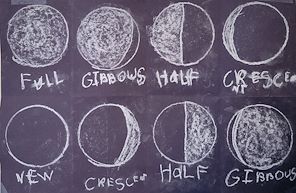 FULL GIBBOUS HALF CRESCEN
NEW CRESCEN HALF GIBBOUS